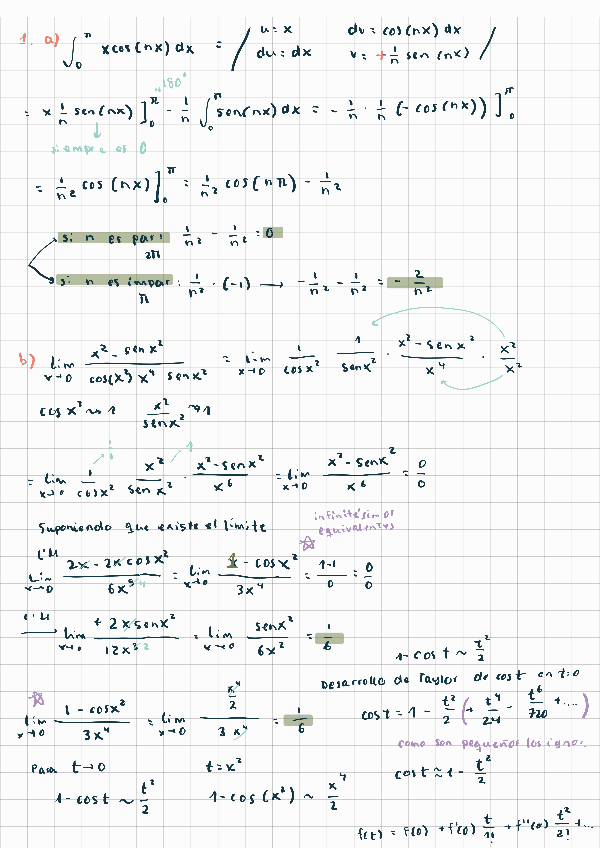 1. a) ∫₀^π x cos(nx) dx = / u = x dv = cos(nx) dx
du = dx v = + 1/n sen(nx) /
= x 1/n sen(nx) ]₀^π - 1/n ∫₀^π sen(nx) dx = - 1/n · 1/n (-cos(nx)) ]₀^π
180°
siempre es 0
= 1/n² cos(nx) ]₀^π = 1/n² cos(nπ) - 1/n²
si n es par: 1/n² - 1/n² = 0
2π
si n es impar: 1/n² · (-1) → - 1/n² - 1/n² = - 2/n²
π
b) lim x→0 (x² - sen x²)/(cos(x²) x⁴ sen x²) = lim x→0 1/cos x² · 1/sen x² · (x² - sen x²)/x⁴ · x²/x²
cos x² ~ 1 x²/sen x² → 1
= lim x→0 1/cos x² · x²/sen x² · (x² - sen x²)/x⁶ = lim x→0 (x² - sen x²)/x⁶ = 0/0
1 1
Suponiendo que existe el límite
infinitésimos
equivalentes
L'H lim x→0 (2x - 2x cos x²)/6x⁵ ⁴ = lim x→0 (1 - cos x²)/3x⁴ = (1-1)/0 = 0/0
L'H → lim x→0 (+ 2x sen x²)/12x³ ² = lim x→0 sen x²/6x² = 1/6
1 - cos t ~ t²/2
Desarrollo de Taylor de cos t en t=0
☆ lim x→0 (1 - cos x²)/3x⁴ = lim x→0 (x⁴/2)/3x⁴ = 1/6
cos t = 1 - t²/2 (+ t⁴/24 - t⁶/720 + ...)
como son pequeños los ignor.
Para t→0 t = x²
cos t ≈ 1 - t²/2
1 - cos t ~ t²/2 1 - cos(x²) ~ x⁴/2
f(t) = f(0) + f'(0) t/1! + f''(0) t²/2! + ...